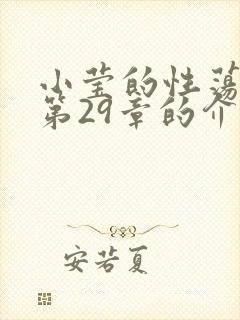 小莹的性荡
第29章的介
安若夏